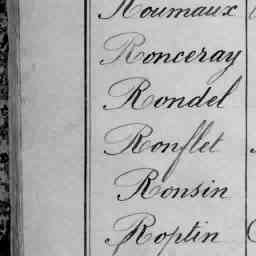 Roumaux
Ronceray
Rondel
Ronflet
Ronsin
Roptin